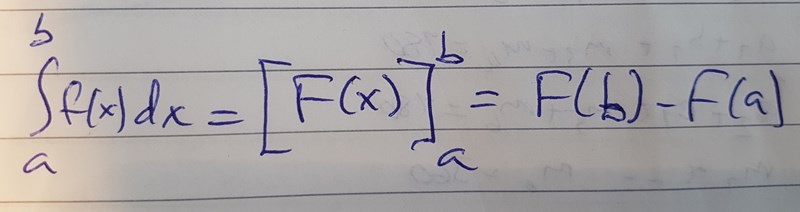 ∫_a^b f(x) dx = [F(x)]_a^b = F(b) - F(a)